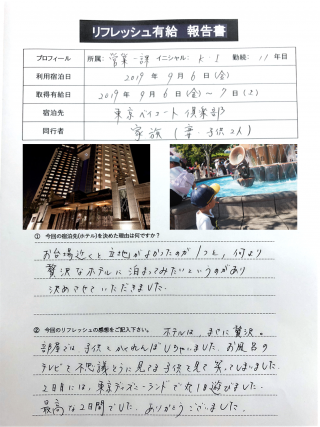 リフレッシュ有給 報告書
プロフィール 所属: 営業一課 イニシャル: K.I 勤続: 11 年目
利用宿泊日 2019年 9月 6日(金)
取得有給日 2019年 9月 6日(金)~7日(土)
宿泊先 東京ベイコート倶楽部
同行者 家族(妻・子供2人)
① 今回の宿泊先(ホテル)を決めた理由は何ですか?
お台場近くと立地がよかったのが1つと、何より
贅沢なホテルに泊まってみたいというのがあり
決めさせていただきました。
② 今回のリフレッシュの感想をご記入下さい。 ホテルは、まさに贅沢。
部屋では子供とかくれんぼしちゃいました。お風呂の
テレビを不思議そうに見てる子供を見て笑ってしまいました。
2日目には、東京ディズニーランドで丸1日遊びました。
最高な2日間でした。ありがとうございました。